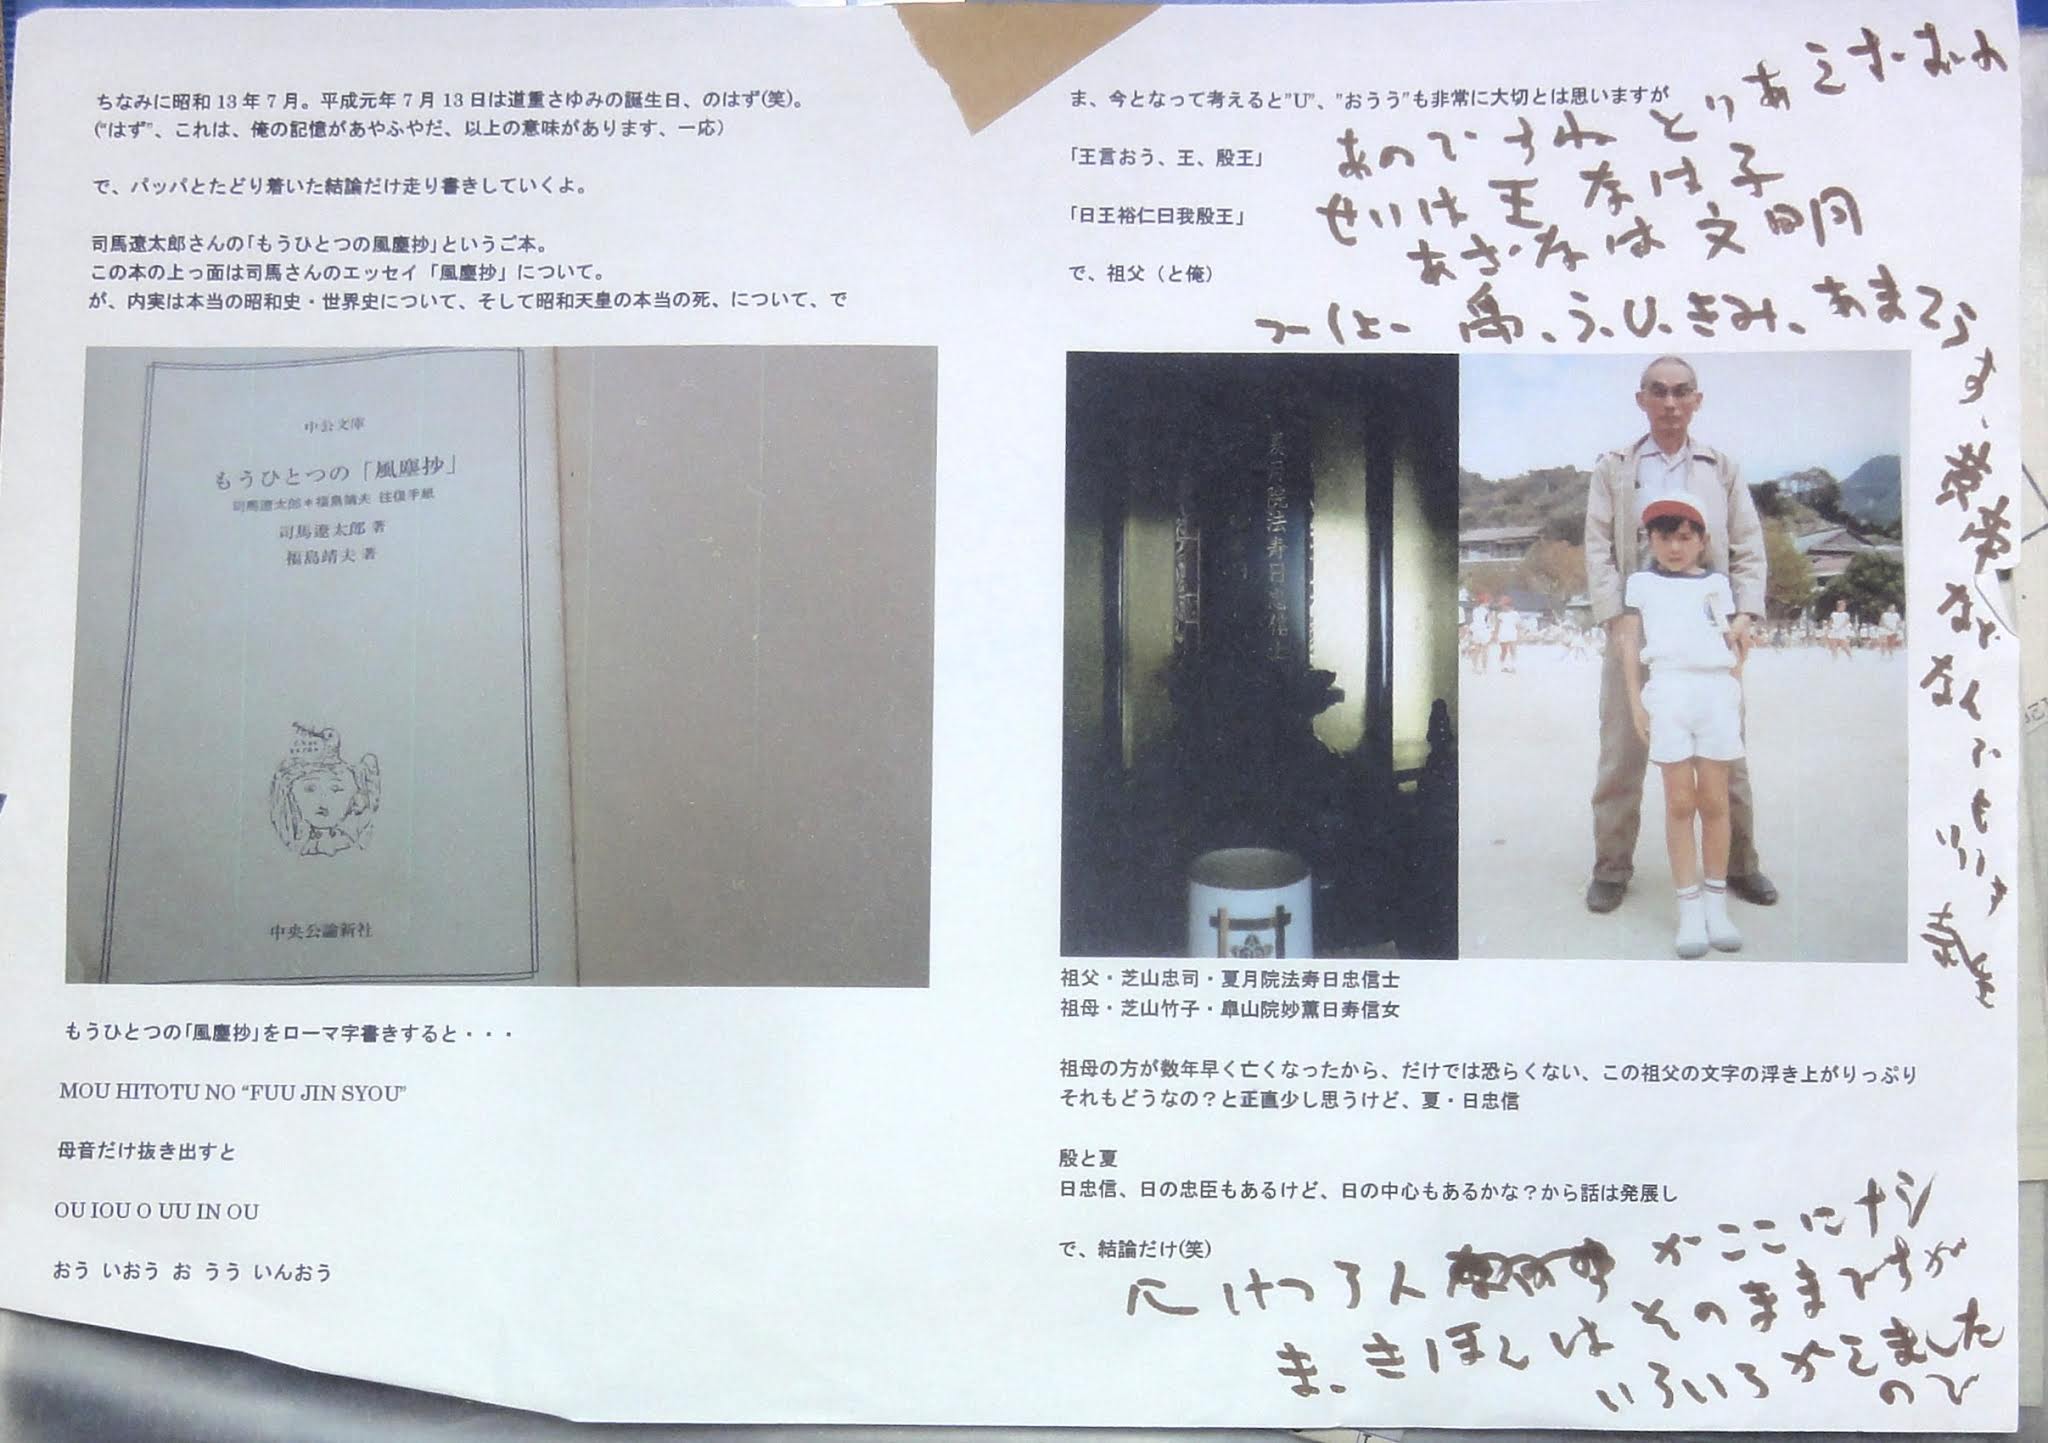 ちなみに昭和 13 年 7 月。平成元年 7 月 13 日は道重さゆみの誕生日、のはず(笑)。
(“はず”、これは、俺の記憶があやふやだ、以上の意味があります、一応)
で、パッパとたどり着いた結論だけ走り書きしていくよ。
司馬遼太郎さんの「もうひとつの風塵抄」というご本。
この本の上っ面は司馬さんのエッセイ「風塵抄」について。
が、内実は本当の昭和史・世界史について、そして昭和天皇の本当の死、について、で
中公文庫
もうひとつの「風塵抄」
司馬遼太郎＊福島靖夫 往復手紙
司馬遼太郎 著
福島靖夫 著
中央公論新社
もうひとつの「風塵抄」をローマ字書きすると・・・
MOU HITOTU NO “FUU JIN SYOU”
母音だけ抜き出すと
OU IOU O UU IN OU
おう いおう お うう いんおう
ま、今となって考えると”U”、”おうう”も非常に大切とは思いますが
「王言おう、王、殷王」
「日王裕仁曰我殷王」
で、祖父（と俺）
あのですね とりあえずおれ
せいは王 なは子
あざなは文明
つーしょー 禹、う、U、きみ、あまてらす、黄帝 など なんでもいいす
夏月院法寿日忠信士
祖父・芝山忠司・夏月院法寿日忠信士
祖母・芝山竹子・皐山院妙薫日寿信女
祖母の方が数年早く亡くなったから、だけでは恐らくない、この祖父の文字の浮き上がりっぷり
それもどうなの？と正直少し思うけど、夏・日忠信
殷と夏
日忠信、日の忠臣もあるけど、日の中心もあるかな？から話は発展し
で、結論だけ(笑)
けつろん がここにナシ
ま、きほんはそのままですが
いろいろかえました
ので